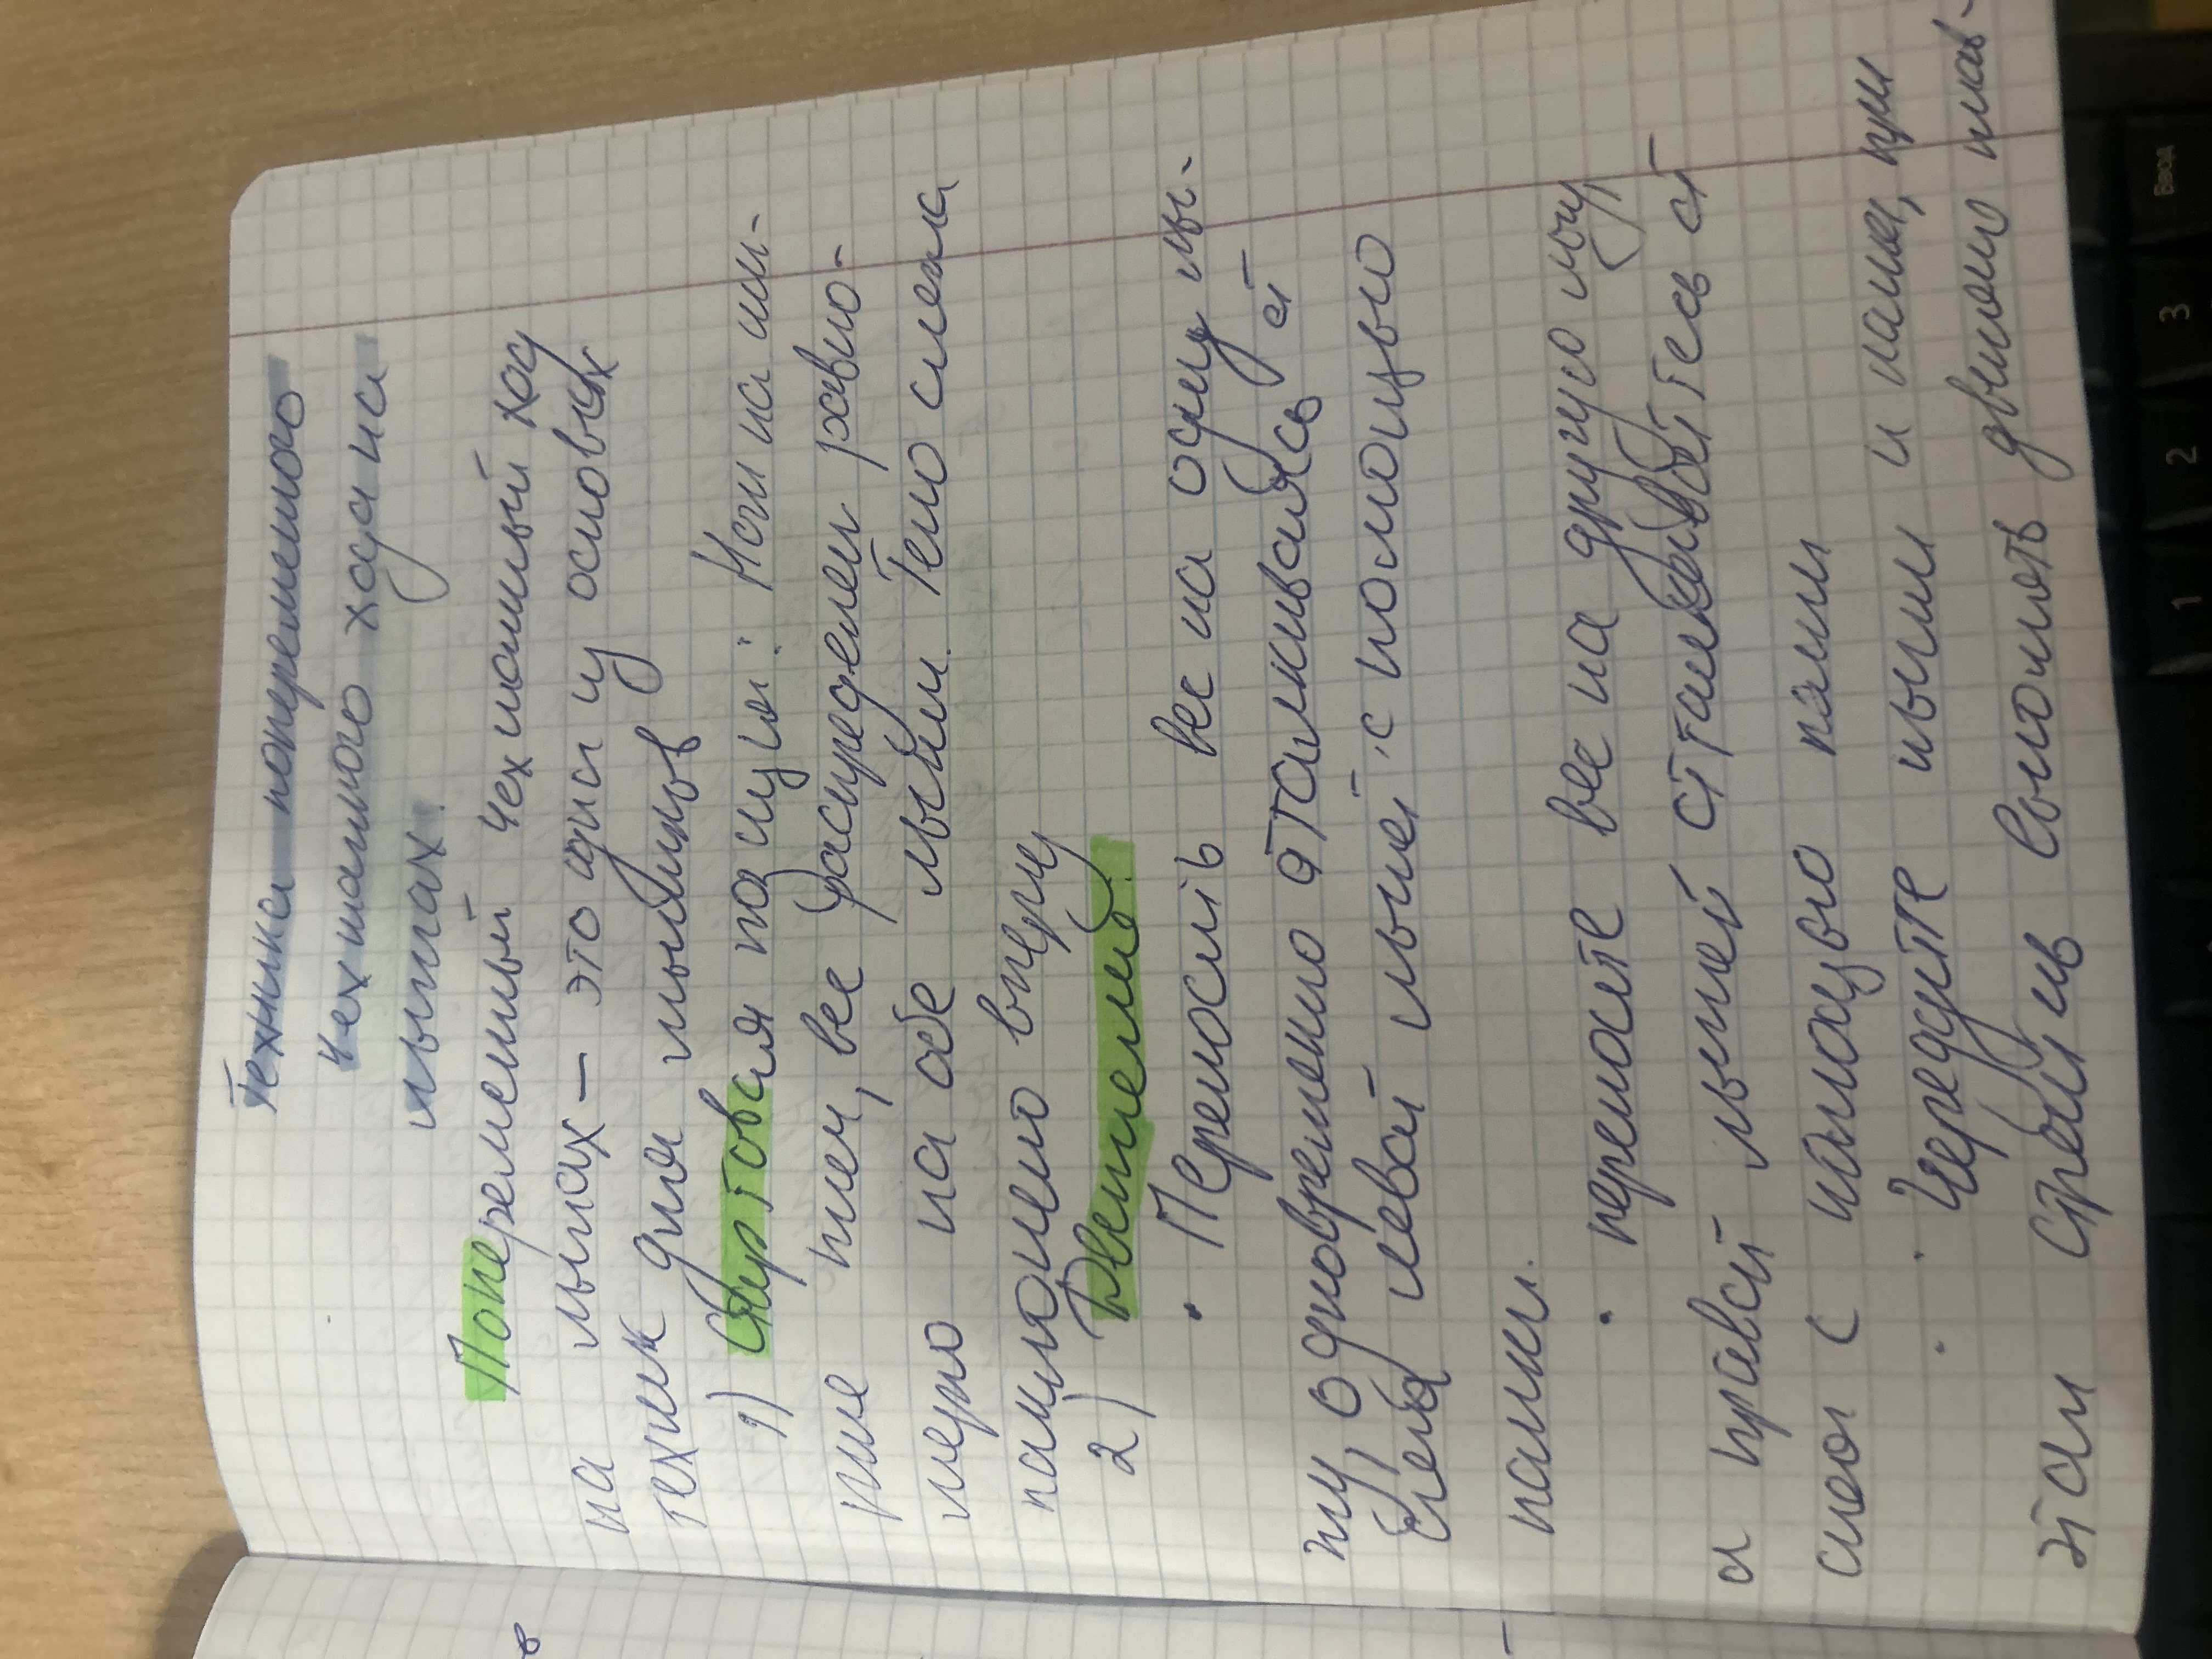 Техника попеременного
чехшажного хода на
лыжах.
Попеременный чехшажный ход
на лыжах – это одна из основых
техник для лыжников
1) Стартовая позиция: Ноги на ши-
рине плеч, вес распределен равно-
мерно на обе лыжи. Тело слегка
наклонено вперед
2) Движение.
• Переносить вес на одну лы-
жу, одновременно отталкиваясь от
снега левой лыжей с помощью
палки.
• переносите вес на другую лыжу,
а правой лыжей отталкивайтесь от
снега с помощью палки
• Чередуйте лыжи и палки, при
этом стремясь выполнять движения плав-